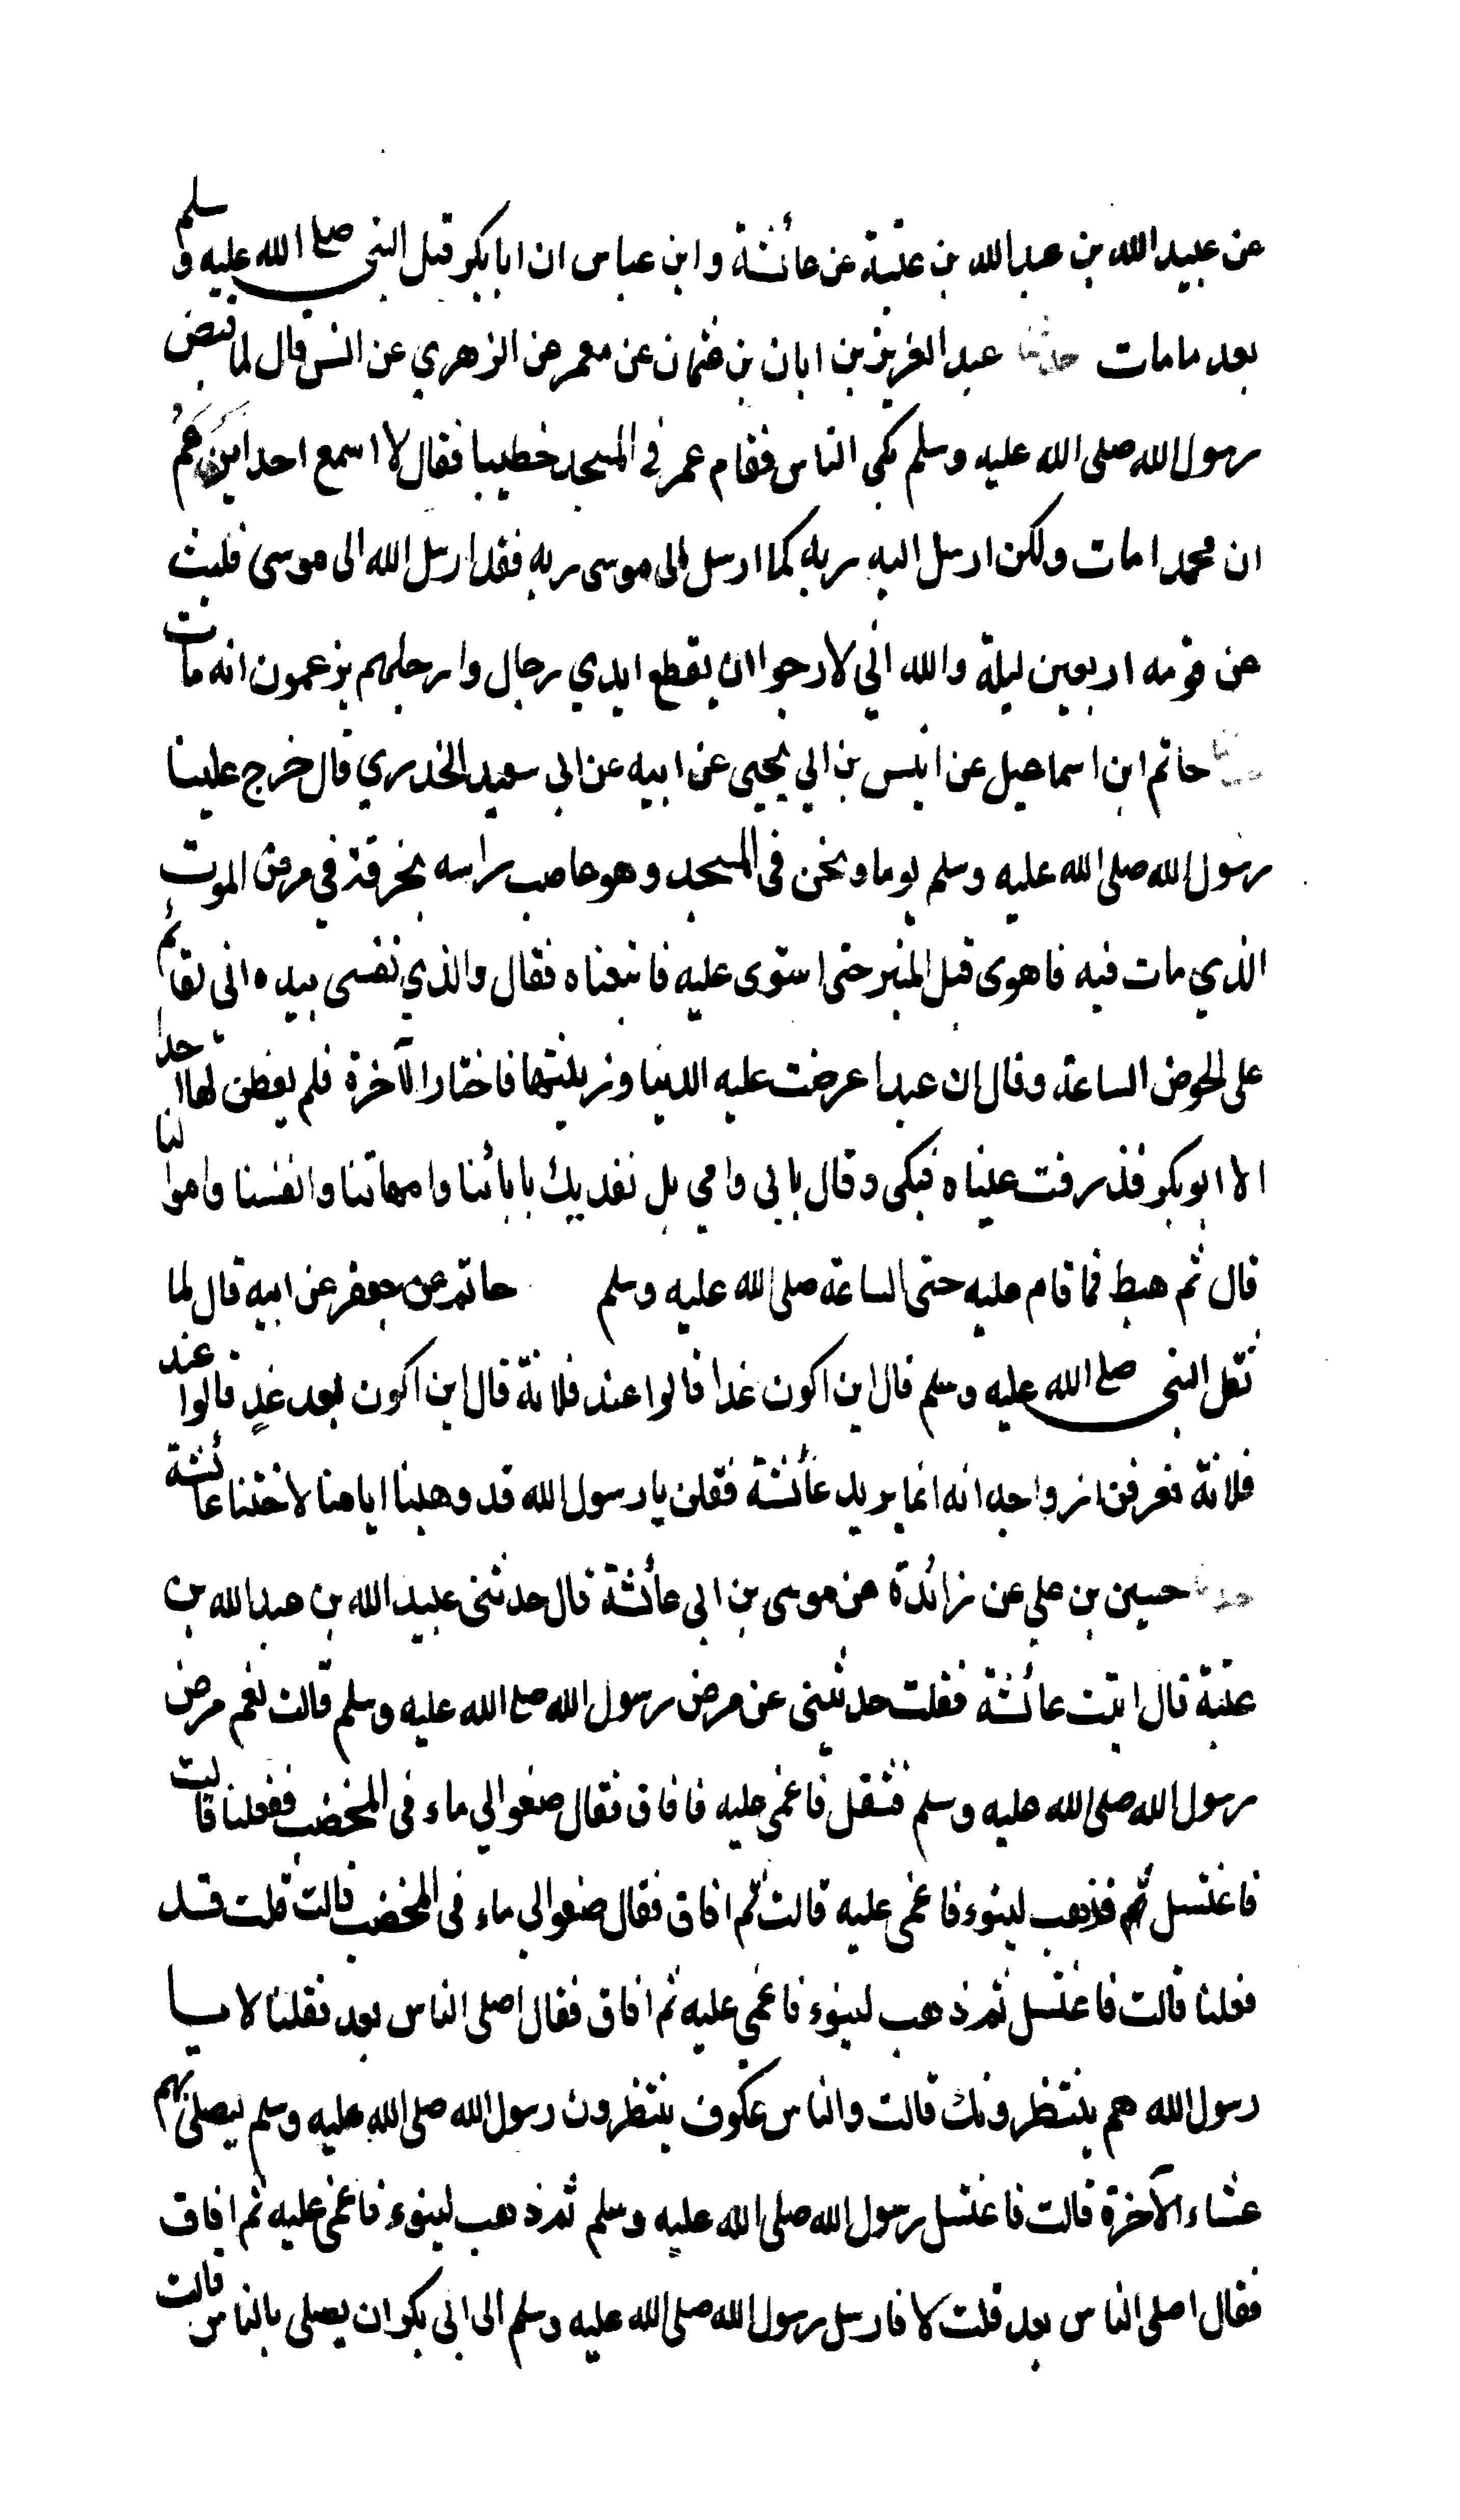 عن عبيد الله بن عبد الله بن عتبة عن عائشة وابن عباس ان ابابكر قبل النبى صلى الله عليه وسلم
بعد ما مات حدثنا عبد العزيز بن ابان بن عثمان عن معمر عن الزهري عن انس قال لما قبض
رسول الله صلى الله عليه وسلم بكى الناس فقام عمر فى المسجد خطيبا فقال لا اسمع احدا يزعم
ان محمدا مات ولكن ارسل اليه ربه كما ارسل الى موسى ربه فقد ارسل الله الى موسى فلبث
عن قومه اربعين ليلة والله اني لارجوا ان يقطع ايدي رجال وارجلهم يزعمون انه مات
حدثنا حاتم ابن اسماعيل عن انيس بن ابي يحيى عن ابيه عن ابى سعيد الخدري قال خرج علينا
رسول الله صلى الله عليه وسلم يوما ونحن فى المسجد وهو عاصب راسه بخرقة في مرض الموت
الذي مات فيه فاهوى قبل المنبر حتى استوى عليه فاتبعناه فقال والذي نفسى بيده انى لقائم
على الحوض الساعة وقال ان عبدا عرضت عليه الدنيا وزينتها فاختار الآخرة فلم يفطن لها احد
الا ابو بكر فذرفت عيناه فبكى وقال بابى وامي بل نفديك بابائنا وامهاتنا وانفسنا واموالنا
قال ثم هبط فما قام عليه حتى الساعة صلى الله عليه وسلم حاتم عن جعفر عن ابيه قال لما
ثقل النبى صلى الله عليه وسلم قال اين اكون غدا قالوا عند فلانة قال اين اكون بعد غدٍ قالوا عند
فلانة فعرفن ازواجه انه انما يريد عائشة فقلن يا رسول الله قد وهبنا ايامنا لاختنا عائشة
حدثنا حسين بن علي عن زائدة عن موسى بن ابى عائشة قال حدثنى عبيد الله بن عبد الله بن
عتبة قال اتيت عائشة فقلت حدثينى عن مرض رسول الله صلى الله عليه وسلم قالت نعم مرض
رسول الله صلى الله عليه وسلم فثقل فاغمى عليه فافاق فقال ضعوا لي ماء فى المخضب ففعلنا قالت
فاغتسل ثم فذهب لينوء فاغمى عليه قالت ثم افاق فقال ضعوا لي ماء فى المخضب قالت قلت قد
فعلنا قالت فاغتسل ثم ذهب لينوء فاغمى عليه ثم افاق فقال اصلى الناس بعد فقلنا لا يا
رسول الله هم ينتظرونك قالت والناس عكوف ينتظرون رسول الله صلى الله عليه وسلم ليصلى بهم
عشاء الآخرة قالت فاغتسل رسول الله صلى الله عليه وسلم ثم ذهب لينوء فاغمى عليه ثم افاق
فقال اصلى الناس بعد قلت لا فارسل رسول الله صلى الله عليه وسلم الى ابى بكر ان يصلى بالناس قالت